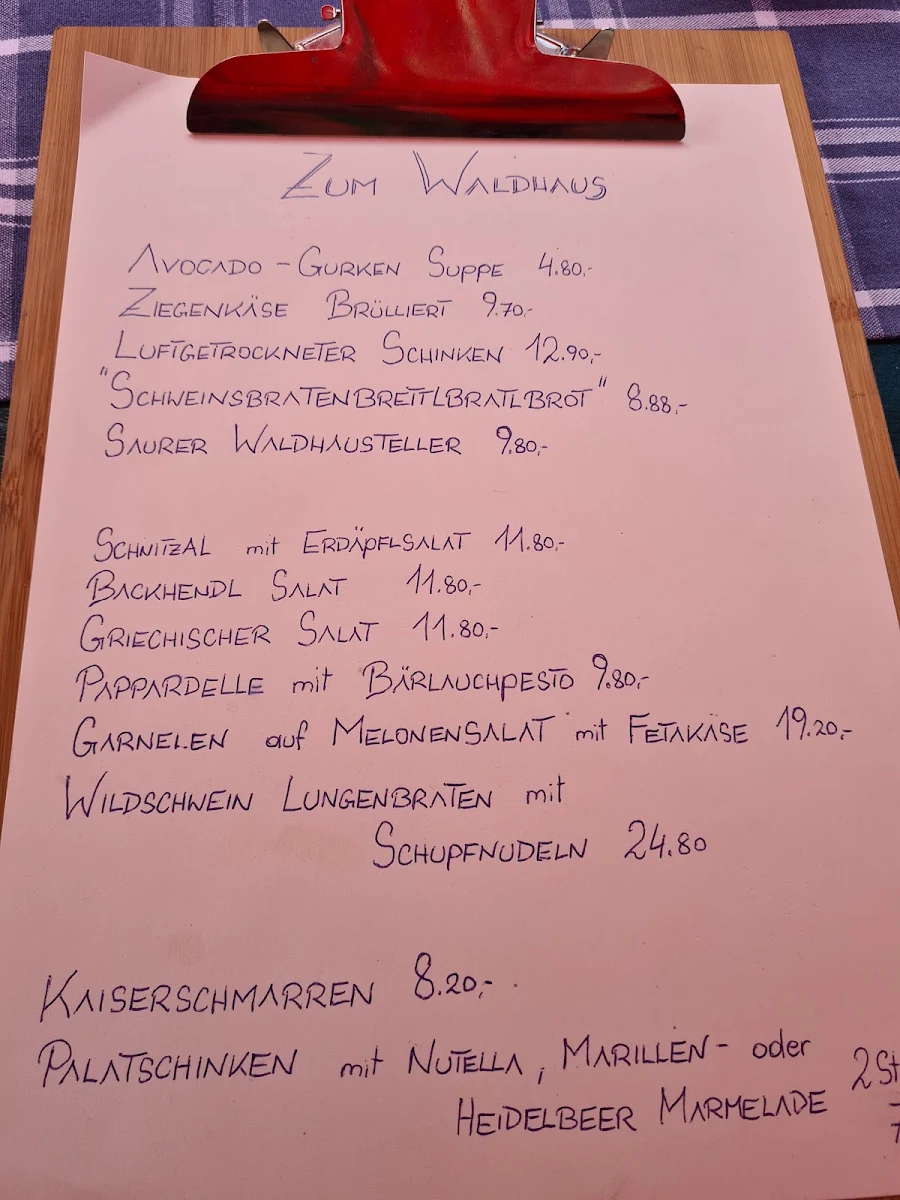 ZUM WALDHAUS
AVOCADO - GURKEN SUPPE 4.80,-
ZIEGENKÄSE BRÜLLIERT 9.70,-
LUFTGETROCKNETER SCHINKEN 12.90,-
"SCHWEINSBRATENBRETTLBRATLBROT" 8.88,-
SAURER WALDHAUSTELLER 9.80,-
SCHNITZAL mit ERDÄPFLSALAT 11.80,-
BACKHENDL SALAT 11.80,-
GRIECHISCHER SALAT 11.80,-
PAPPARDELLE mit BÄRLAUCHPESTO 9.80,-
GARNELEN auf MELONENSALAT mit FETAKÄSE 19.20,-
WILDSCHWEIN LUNGENBRATEN mit
SCHUPFNUDELN 24.80
KAISERSCHMARREN 8.20,-
PALATSCHINKEN mit NUTELLA, MARILLEN- oder
HEIDELBEER MARMELADE 2 St